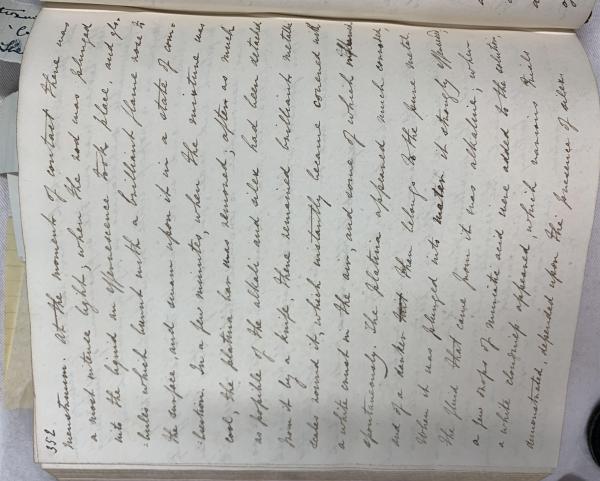 352
menstruum. At the moment of contact there was
a most intense light, when the rod was plunged
into the liquid an effervescence took place and glo-
-bules which burnt with a brilliant flame rose to
the surface, and swam upon it in a state of com-
-bustion. In a few minutes, when the mixture was
cool, the platina bar was removed, after as much
as possible of the alkali and silex had been detached
from it by a knife. There remained brilliant metallic
scales round it, which instantly became covered with
a white crust in the air, and some of which inflamed
spontaneously. The platina appeared much corroded,
and of a darker than belongs to the pure metal.
When it was plunged into water it strongly effervesced,
the fluid that came from it was alkaline; when
a few drops of muriatic acid were added to the solution,
a white cloudiness appeared which various trials
demonstrated, depended upon the presence of silex.